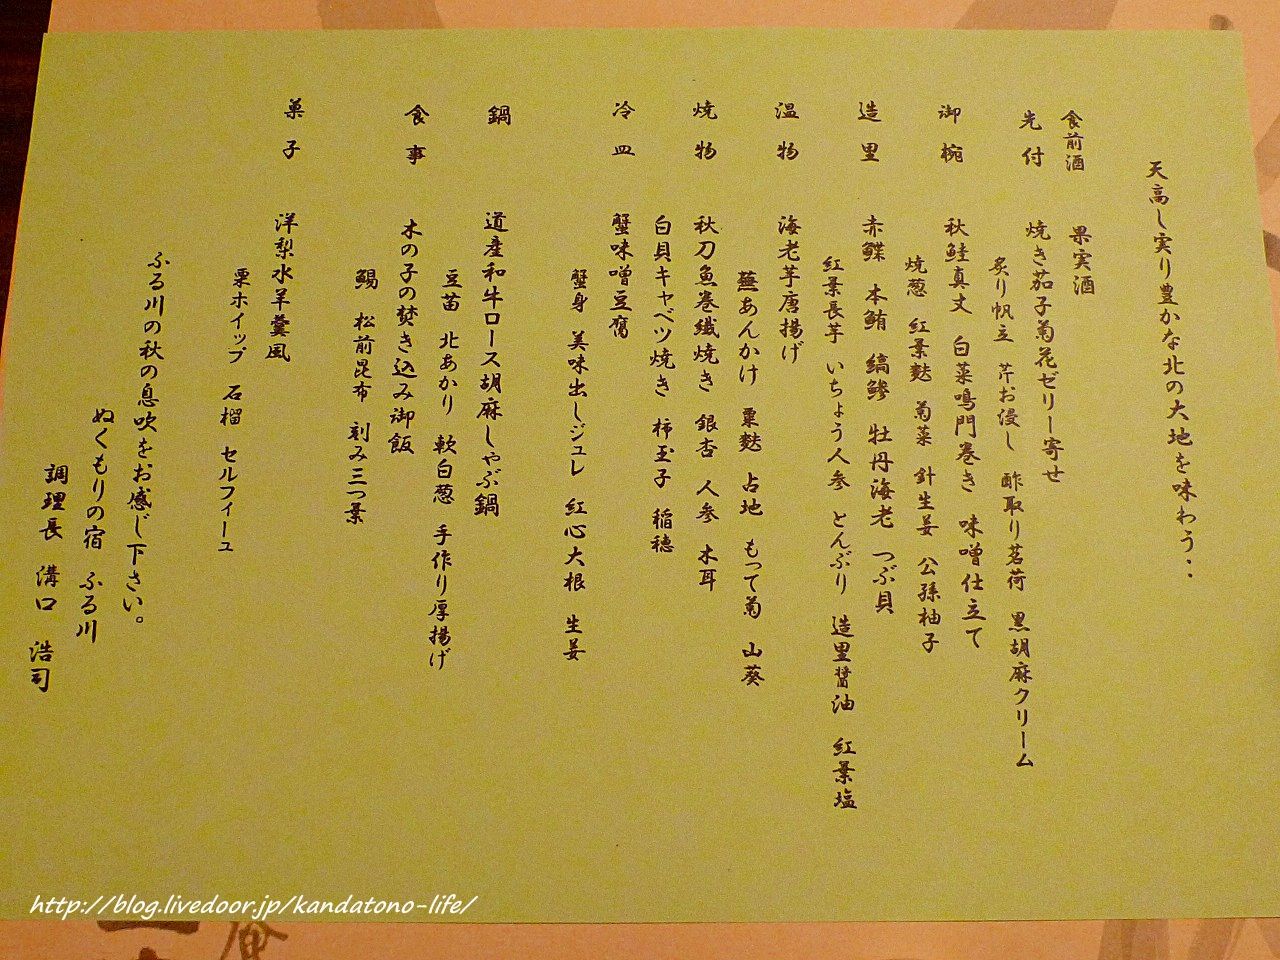 天高し実り豊かな北の大地を味わう・・
食前酒　果実酒
先付　焼き茄子菊花ゼリー寄せ
炙り帆立　芹お浸し　酢取り茗荷　黒胡麻クリーム
御椀　秋鮭真丈　白菜鳴門巻き　味噌仕立て
焼葱　紅葉麩　菊菜　針生姜　公孫柚子
造里　赤鰈　本鮪　縞鯵　牡丹海老　つぶ貝
紅葉長芋　いちょう人参　とんぶり　造里醤油　紅葉塩
温物　海老芋唐揚げ
蕪あんかけ　粟麩　占地　もって菊　山葵
焼物　秋刀魚巻繊焼き　銀杏　人参　木耳
白貝キャベツ焼き　柿玉子　稲穂
冷皿　蟹味噌豆腐
蟹身　美味出しジュレ　紅心大根　生姜
鍋　道産和牛ロース胡麻しゃぶ鍋
豆苗　北あかり　軟白葱　手作り厚揚げ
食事　木の子の焚き込み御飯
鯣　松前昆布　刻み三つ葉
菓子　洋梨水羊羹風
栗ホイップ　石榴　セルフィーユ
ふる川の秋の息吹をお感じ下さい。
ぬくもりの宿　ふる川
調理長　溝口　浩司
http://blog.livedoor.jp/kandatono-life/
庵